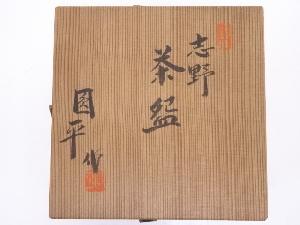 志野
茶盌
圓平作